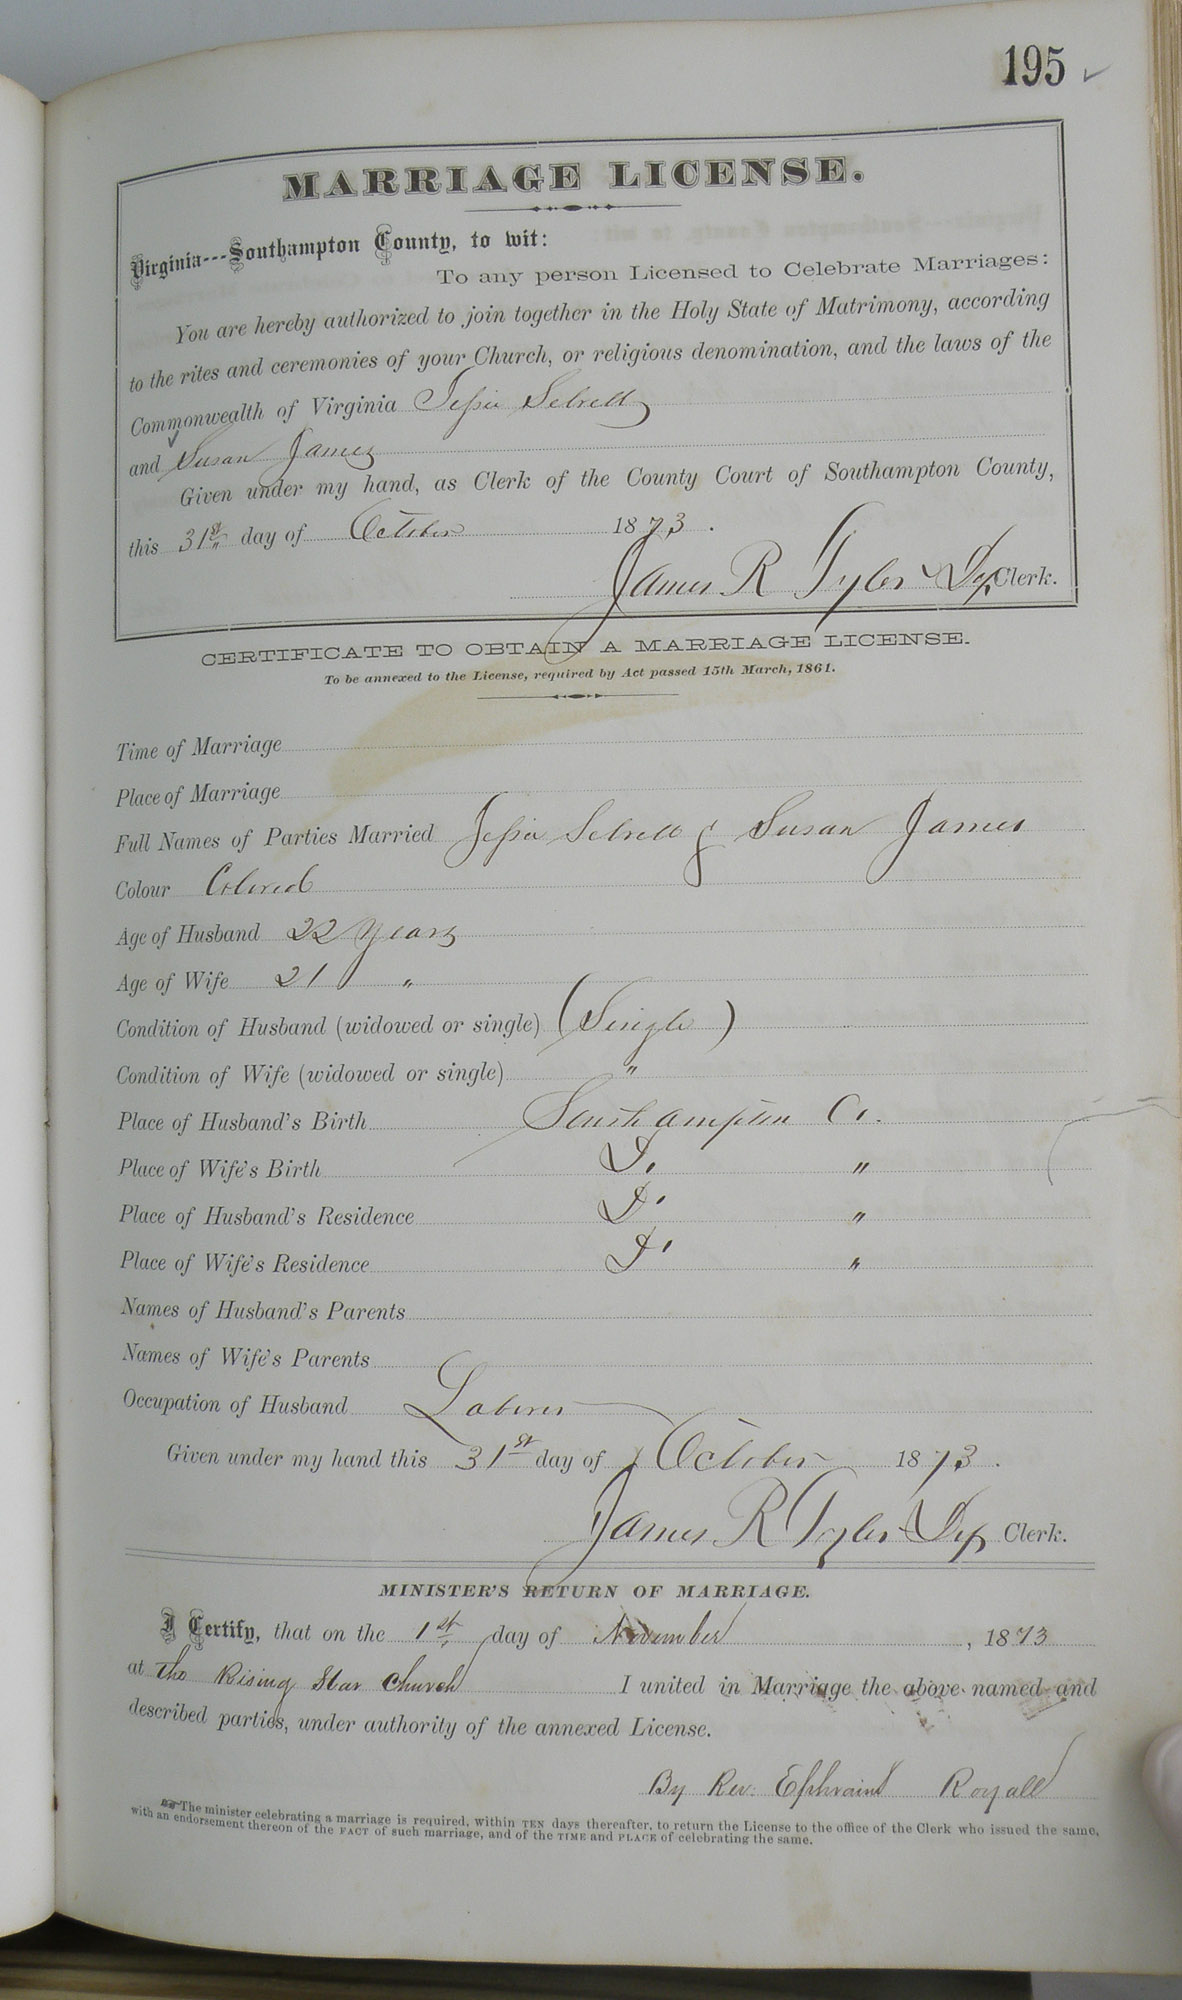 195 ✓
MARRIAGE LICENSE.
Virginia---Southampton County, to wit:
To any person Licensed to Celebrate Marriages:
You are hereby authorized to join together in the Holy State of Matrimony, according
to the rites and ceremonies of your Church, or religious denomination, and the laws of the
Commonwealth of Virginia Jessie Sebrell
and Susan James
Given under my hand, as Clerk of the County Court of Southampton County,
this 31st day of October 1873.
James R Tyler Dep Clerk.
CERTIFICATE TO OBTAIN A MARRIAGE LICENSE.
To be annexed to the License, required by Act passed 15th March, 1861.
Time of Marriage
Place of Marriage
Full Names of Parties Married Jessie Sebrell & Susan James
Colour Colored
Age of Husband 22 Years
Age of Wife 21 "
Condition of Husband (widowed or single) (Single)
Condition of Wife (widowed or single) "
Place of Husband's Birth Southampton Co.
Place of Wife's Birth Do "
Place of Husband's Residence Do "
Place of Wife's Residence Do "
Names of Husband's Parents
Names of Wife's Parents
Occupation of Husband Laborer
Given under my hand this 31st day of October 1873.
James R Tyler Dep Clerk.
MINISTER'S RETURN OF MARRIAGE.
I Certify, that on the 1st day of November, 1873
at The Rising Star Church I united in Marriage the above named and
described parties, under authority of the annexed License.
By Rev: Ephraim Royall
The minister celebrating a marriage is required, within TEN days thereafter, to return the License to the office of the Clerk who issued the same,
with an endorsement thereon of the FACT of such marriage, and of the TIME and PLACE of celebrating the same.